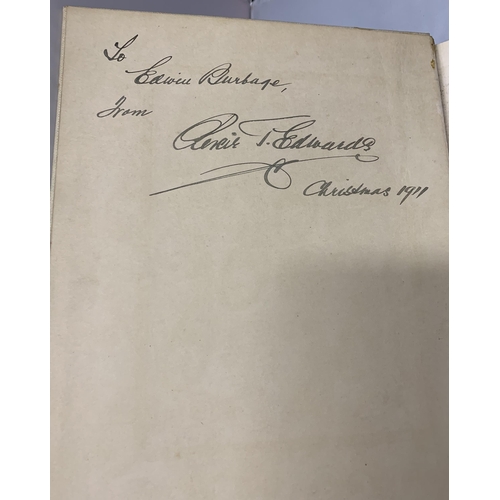 To
Edwin Burbage,
From
T. Edwards
Christmas 1911